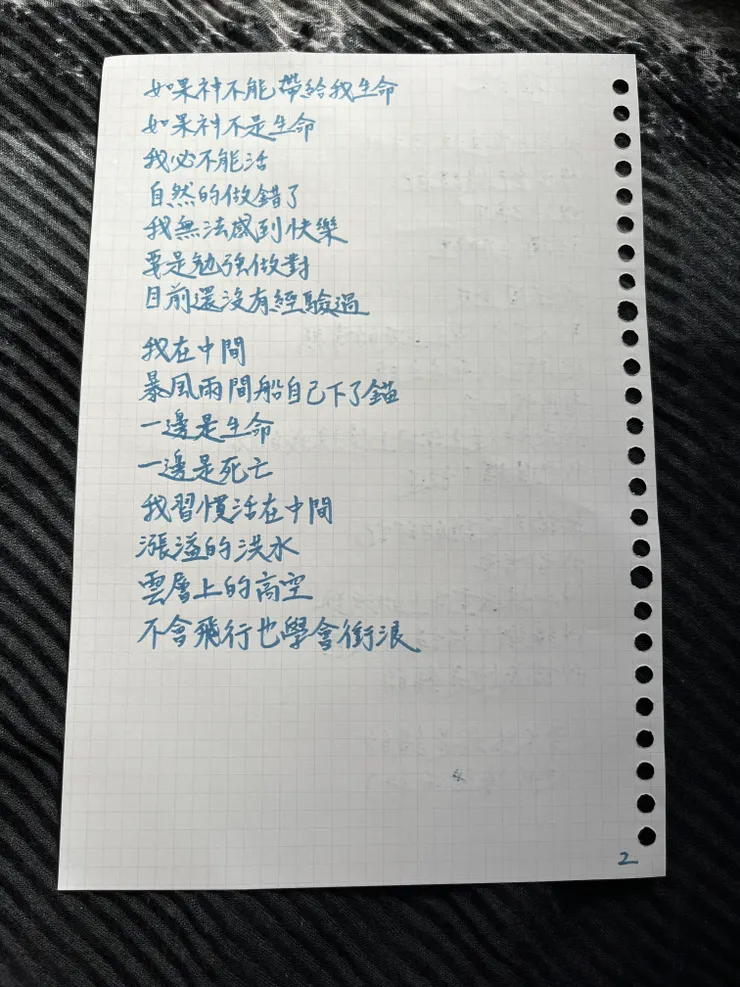 如果神不能帶給我生命
如果神不是生命
我必不能活
自然的做錯了
我無法感到快樂
要是勉強做對
目前還沒有經驗過
我在中間
暴風雨間船自己下了錨
一邊是生命
一邊是死亡
我習慣活在中間
漲溢的洪水
雲層上的高空
不會飛行也學會衝浪
2